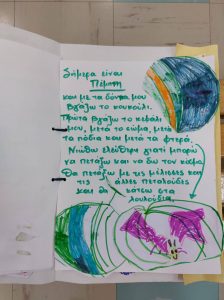 Σήμερα είναι
Πέμπτη
και με τα δόντια μου
βγάζω το κουκούλι.
Πρώτα βγάζω το κεφάλι
μου, μετά το σώμα, μετά
τα πόδια και μετά τα φτερά.
Νιώθω ελεύθερη γιατί μπορώ
να πετάξω και να δω τον κόσμο.
Θα πετάξω με τις μέλισσες και
τις άλλες πεταλούδες
και θα κάτσω στα
λουλούδια.